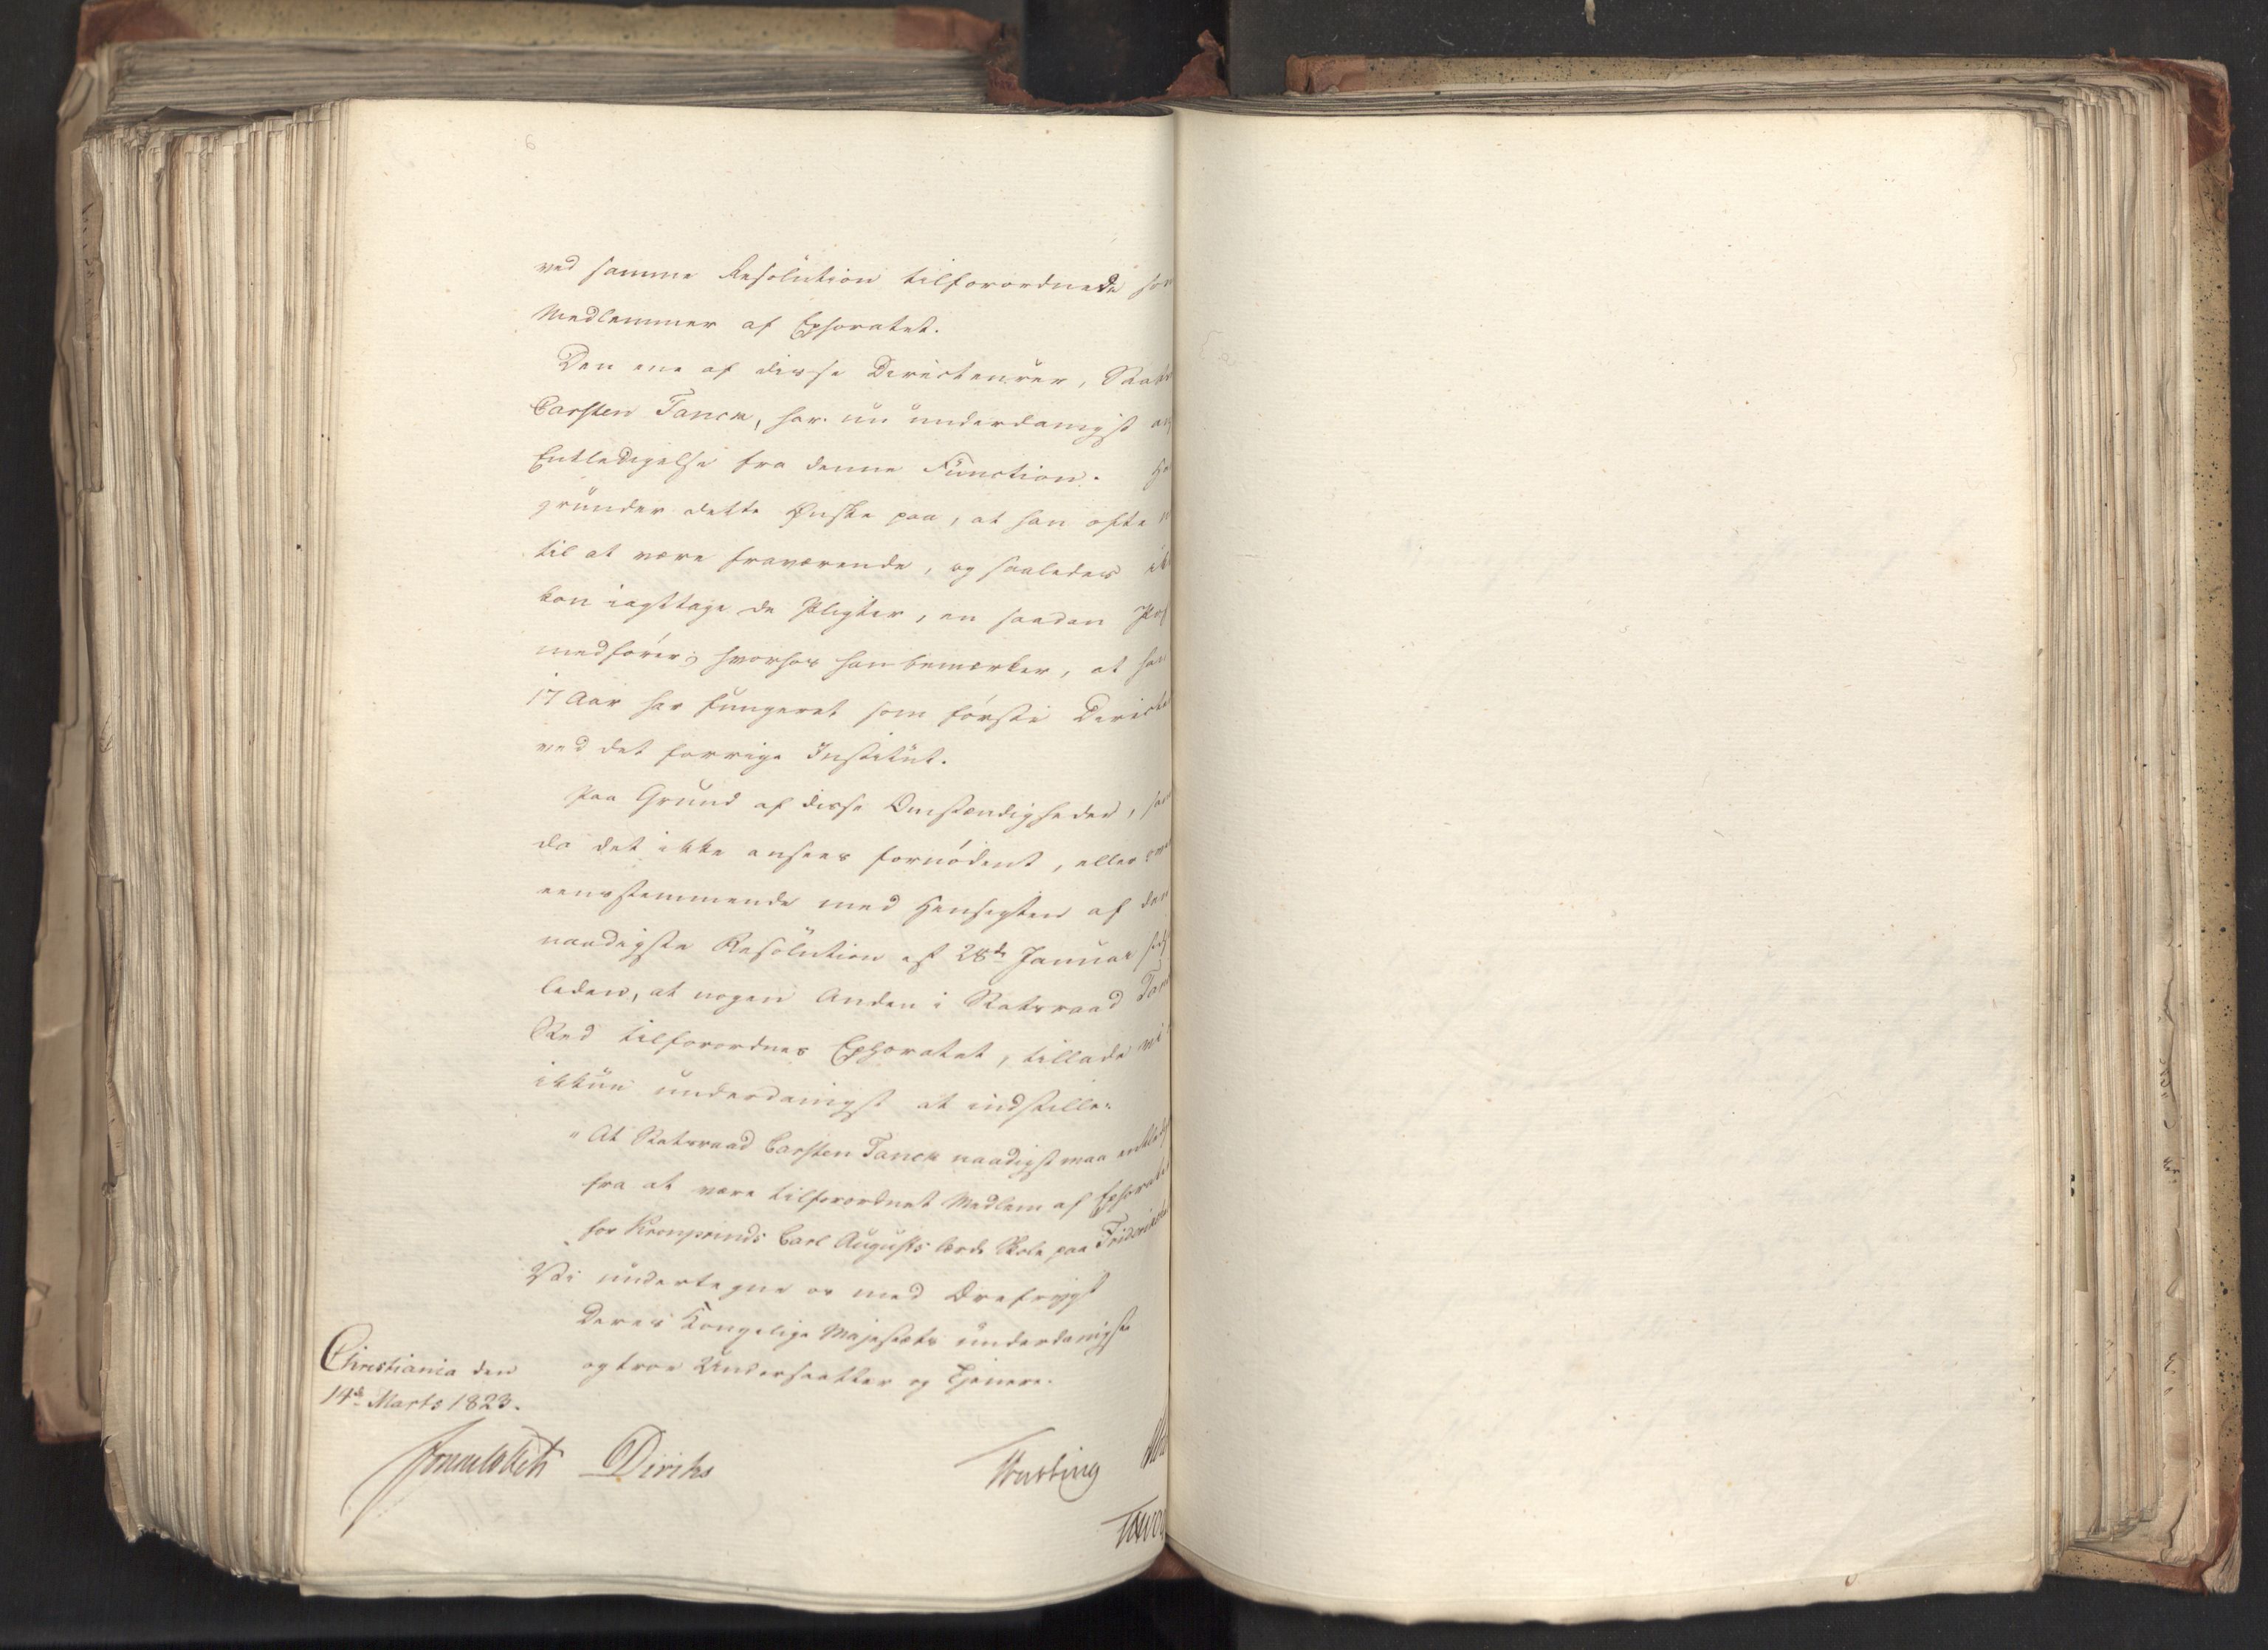 6
ved samme Resolution tilforordnede som
Medlemmer af Ephoratet.
Den ene af disse Directeurer, Stats
Carsten Tanck, har nu underdanigst
Entledigelse fra denne Function.
grunder dette Ønske paa, at han ofte
til at være fraværende, og saaledes
kan iagttage de Pligter, en saadan
medfører; hvorhos han bemærker, at han
17 Aar har fungeret som første Directeu
ved det forrige Institut.
Paa Grund af disse Omstændigheder, sam
da det ikke ansees fornødent, eller
eensstemmende med Hensigten af den
naadigste Resolution af 28de Januar
leden, at nogen Anden i Statsraad Tan
Sted tilforordnes Ephoratet, tillade vi
ikkun underdanigst at indstille:
"At Statsraad Carsten Tanck naadigst maa entledig
fra at være tilforordnet Medlem af Ephoratet
for Kronprinds Carl Augusts lærde Skole paa Friderikshal
Vi undertegne os med Ærefrygt
Deres Kongelige Majestæts underdanigste
og troe Undersaatter og Tjenere.
Christiania den
14de Marts 1823.
Sommelhielm Diriks